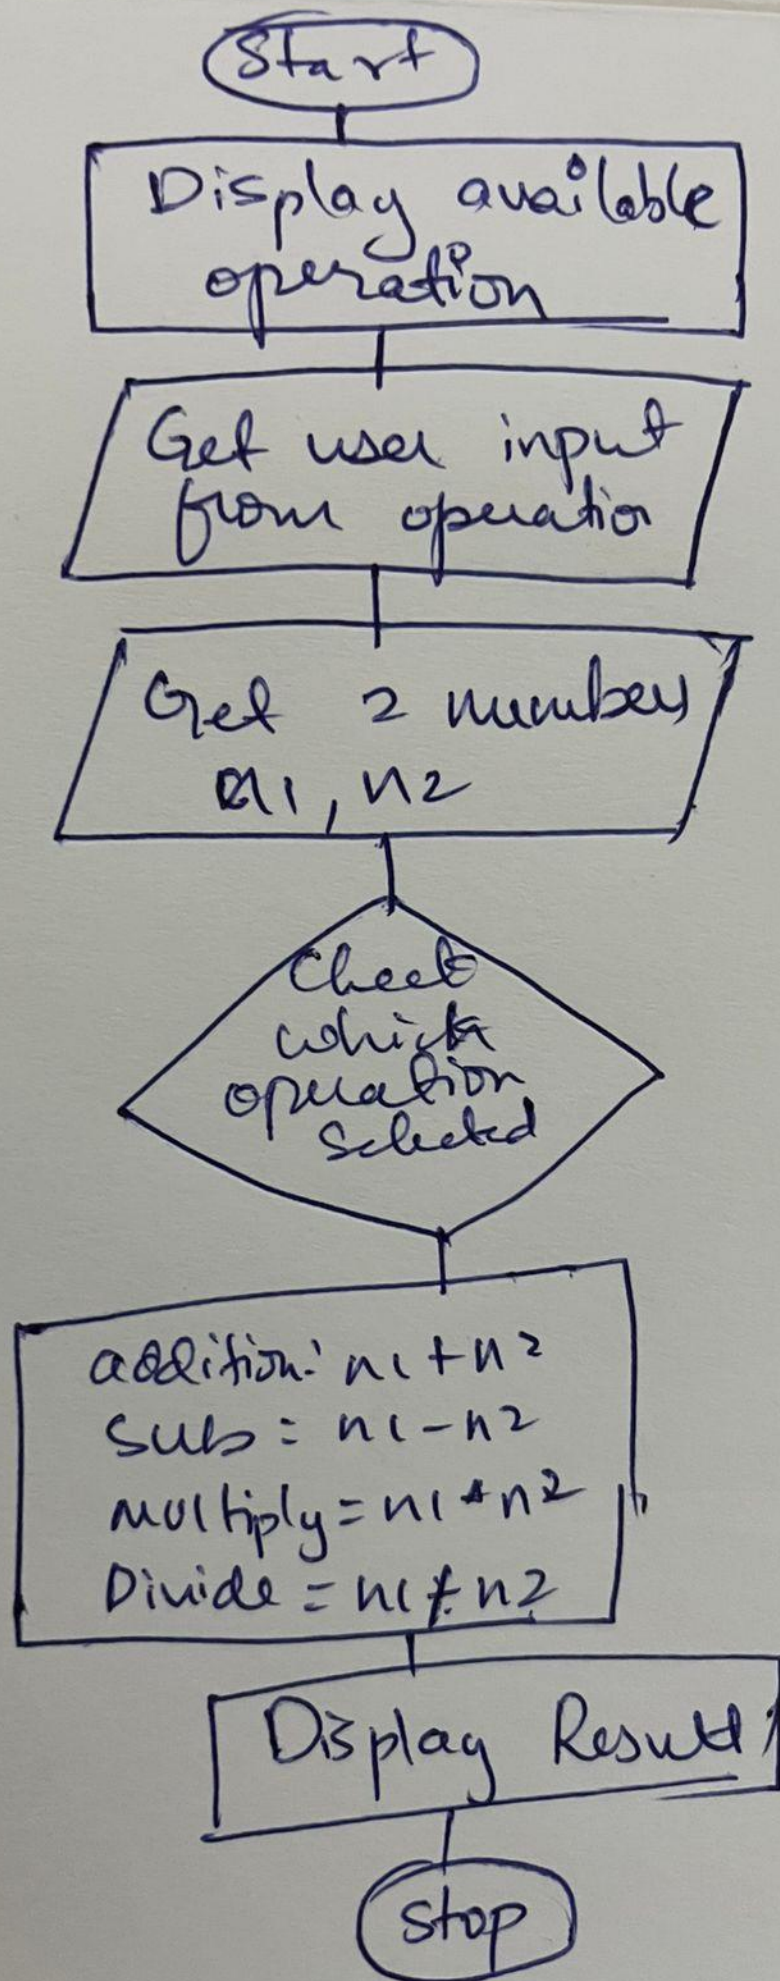 Start
Display available
operation
Get user input
from operation
Get 2 numbers
n1, n2
Check
which
operation
Selected
addition: n1 + n2
Sub = n1 - n2
Multiply = n1 * n2
Divide = n1 / n2
Display Result
Stop